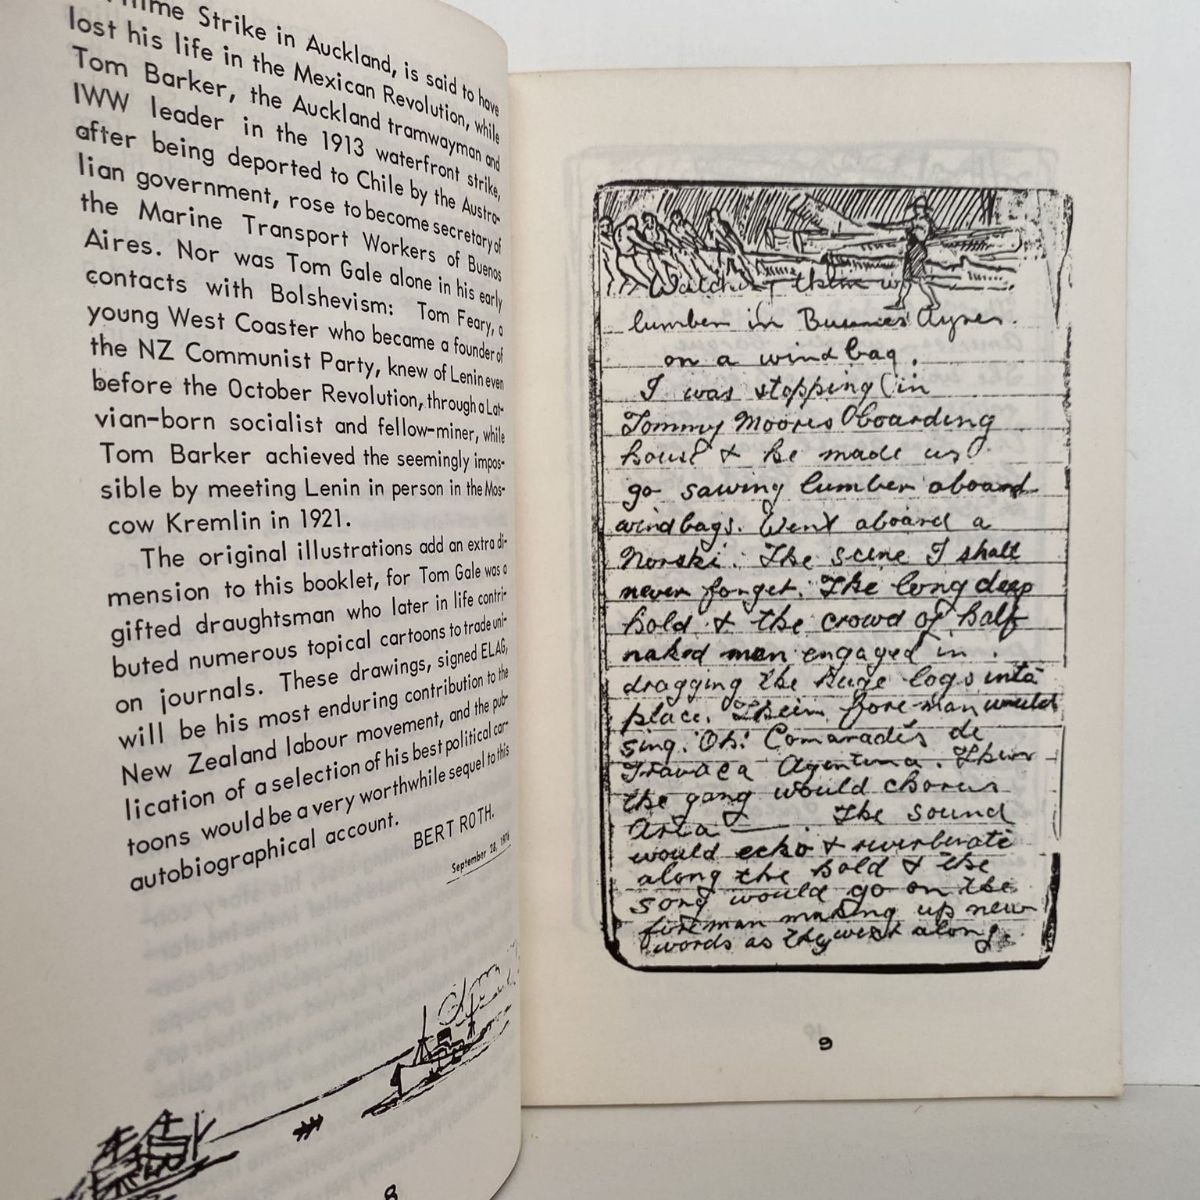 Strike in Auckland, is said to have
lost his life in the Mexican Revolution, while
Tom Barker, the Auckland tramwayman and
IWW leader in the 1913 waterfront strike,
after being deported to Chile by the Austra-
lian government, rose to become secretary of
the Marine Transport Workers of Buenos
Aires. Nor was Tom Gale alone in his early
contacts with Bolshevism: Tom Feary, a
young West Coaster who became a founder of
the NZ Communist Party, knew of Lenin even
before the October Revolution, through a Lat-
vian-born socialist and fellow-miner, while
Tom Barker achieved the seemingly impos-
sible by meeting Lenin in person in the Mos-
cow Kremlin in 1921.
The original illustrations add an extra di-
mension to this booklet, for Tom Gale was a
gifted draughtsman who later in life contri-
buted numerous topical cartoons to trade uni-
on journals. These drawings, signed ELAG,
will be his most enduring contribution to the
New Zealand labour movement, and the pub-
lication of a selection of his best political car-
toons would be a very worthwhile sequel to this
autobiographical account.
BERT ROTH.
September 28, 1976
8
them
lumber in Buenos Ayres.
on a wind bag.
I was stopping in
Tommy Moores boarding
house & he made us
go sawing lumber aboard
windbags. Went aboard a
Norski. The scene I shall
never forget. The long deep
hold & the crowd of half
naked men engaged in
dragging the huge logs into
place. Their foreman would
sing. Oh! Comarades de
Travaca Agentina. Then
the gang would chorus
Arta ___. The sound
would echo & reverberate
along the hold & the
song would go on the
foreman making up new
words as they went along.
9